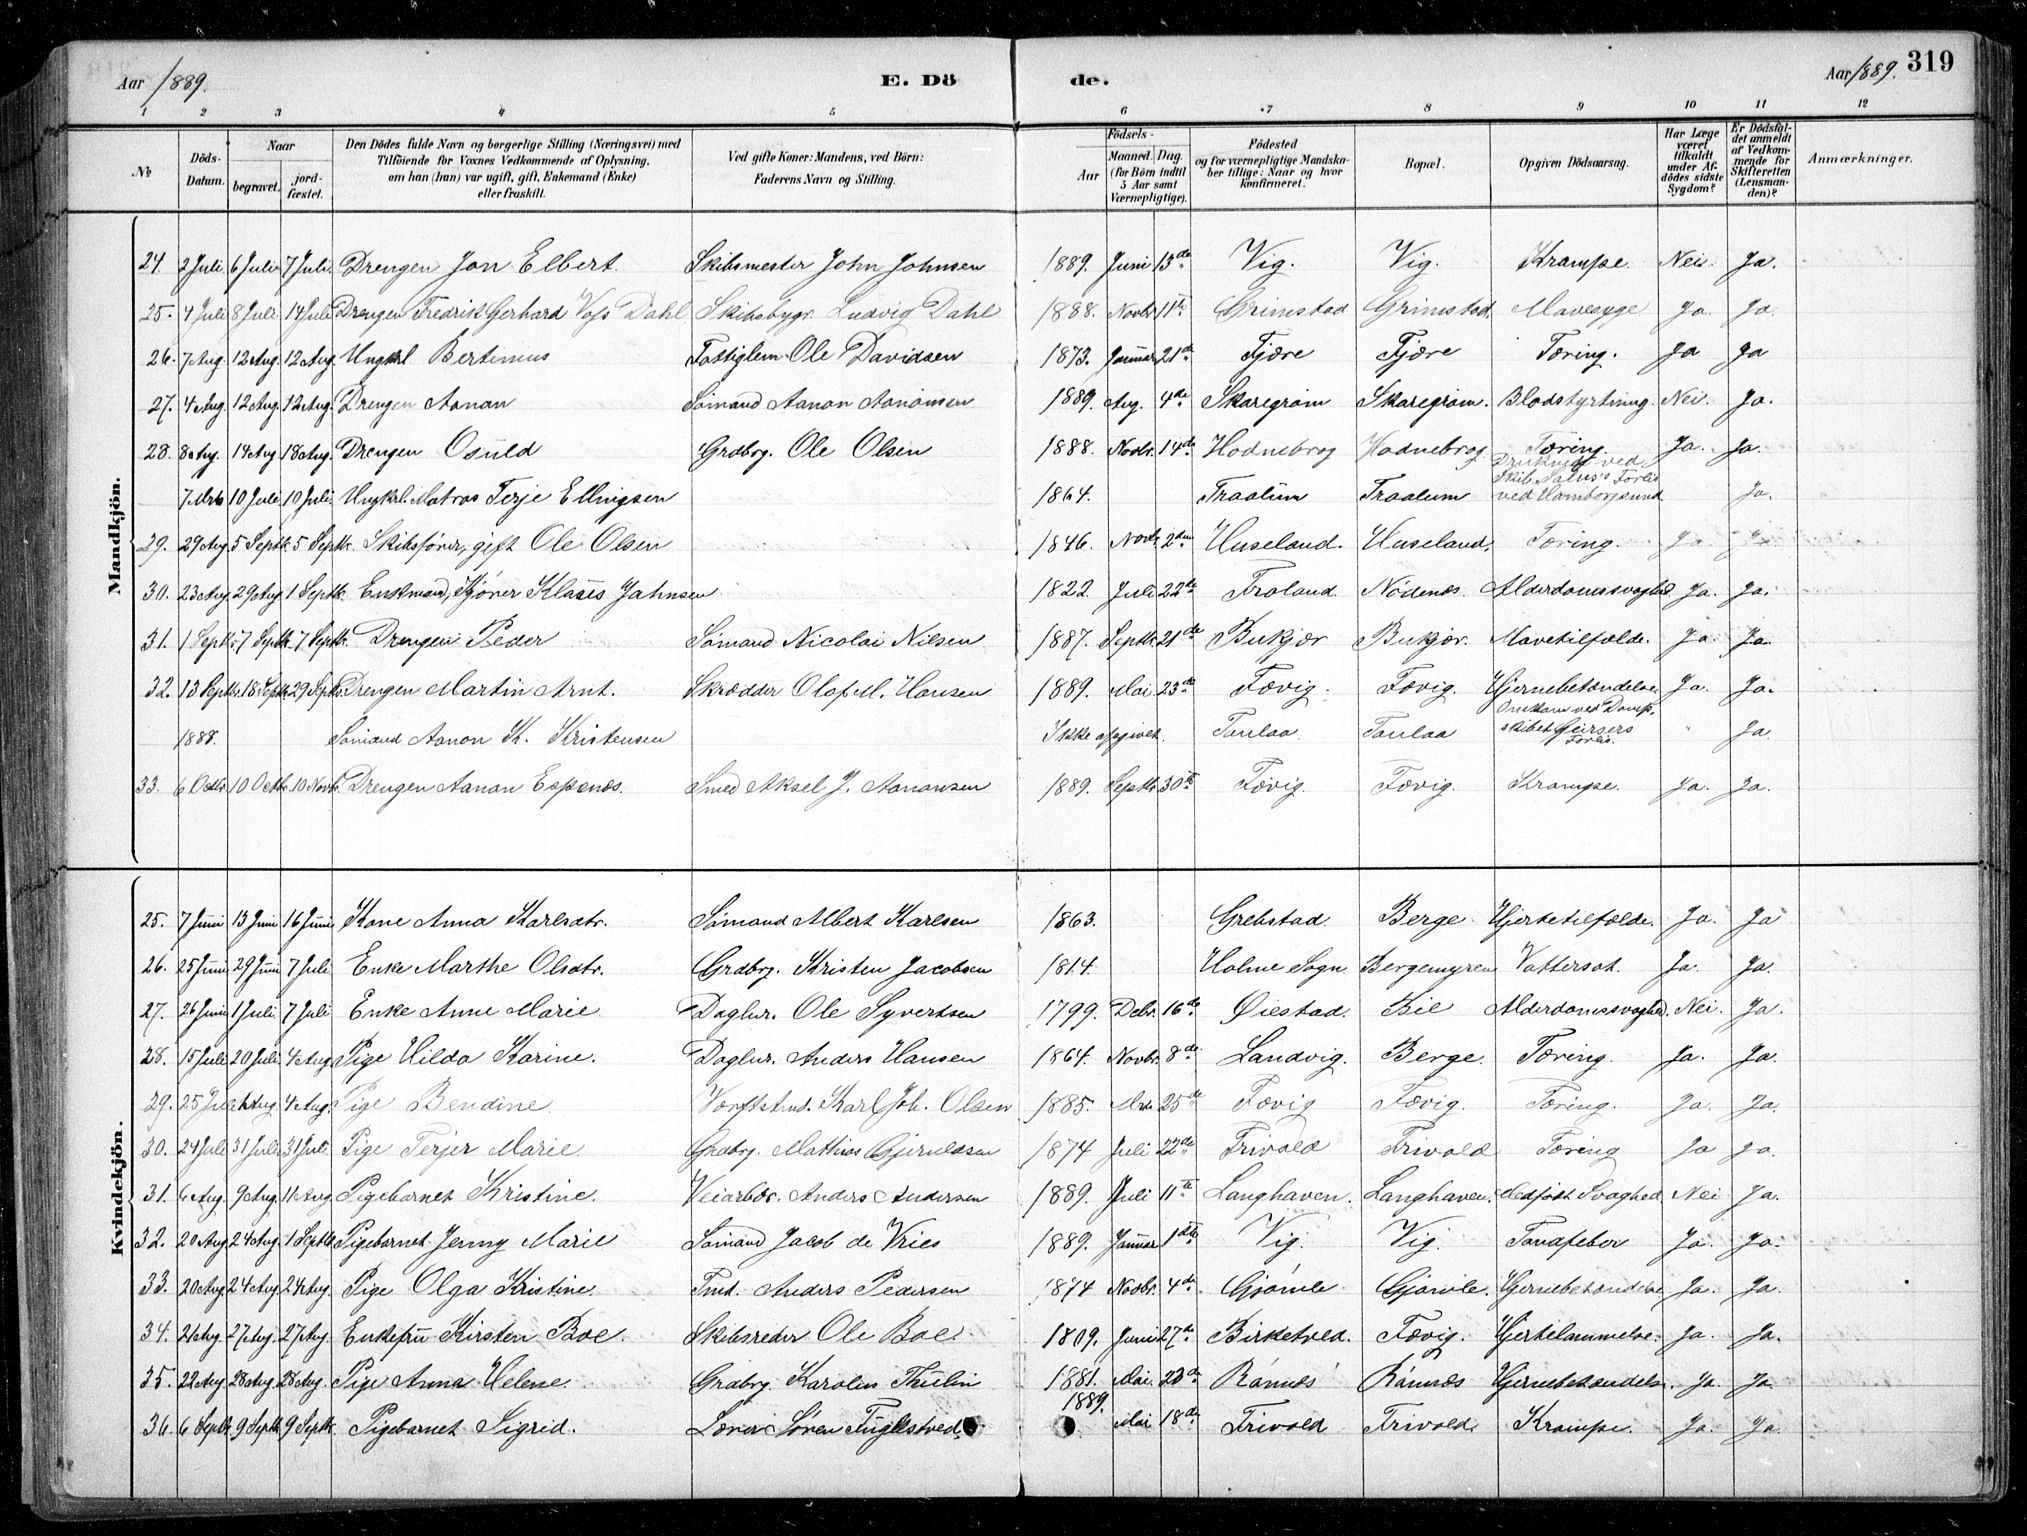 Aar 1889. E. Dö de. Aar 1889. 319
1 2 3 4 5 6 7 8 9 10 11 12
No Döds-Datum. Naar begravet. jord-fæstet. Den Dödes fulde Navn og borgerlige Stilling (Næringsvei) med Tilföiende for Voxnes Vedkommende af Oplysning, om han (hun) var ugift, gift, Enkemand (Enke) eller fraskilt. Ved gifte Koner: Mandens, ved Börn: Faderens Navn og Stilling. Aar Födsels- Maaned. Dag. (for Börn indtil 5 Aar samt Værnepligtige). Födested og for værnepligtige Mandskaber tillige: Naar og hvor konfirmeret. Bopæl. Opgiven Dödsaarsag. Har Læge været tilkaldt under Afdödes sidste Sygdom? Er Dödsfaldet anmeldt af Vedkommende for Skifteretten (Lensmanden)? Anmærkninger.
Mandkjön.
24 2 Juli 6 Juli 7 Juli Drengen Jon Elbert. Skibsmester John Johnsen 1889. Juni 13de Vig. Vig. Krampe. Nei. Ja.
25. 4 Juli 8 Juli 14 Juli Drengen Fredrik Gerhard Voss Dahl Skibsbygr. Ludvig Dahl 1888. Novbr 11te Grimstad Grimstad. Mavesyge Ja. Ja.
26. 7 Aug. 12 Aug. 12 Aug. Ungkrl Bertinius Fattiglem Ole Davidsen 1873. Januar 21de Fjære Fjære Tæring. Ja Ja
27. 4 Aug. 12 Aug. 12 Aug. Drengen Aanon Sömand Aanon Aanonsen 1889. Aug. 4de Skaregrøm Skaregrøm. Blodstyrtning. Nei. Ja.
28. 8 Aug. 14 Aug 18 Aug. Drengen Osuld Grdbrg. Ole Olsen 1888. Novbr. 14de Hodnebrog Hodnebrog Tæring. Ja. Ja.
7 Mrts 10 Juli 10 Juli Ungkrl. Matros Terje Ellingsen 1864. Traalum Traalum Druknet ved Skib Salus's Forlis ved Homborgsund Ja.
29. 29 Aug. 5 Septbr. 5 Septbr. Skibsfører, gift Ole Olsen 1846. Novbr 2den Huseland. Huseland. Tæring. Ja. Ja.
30. 23 Aug. 29 Aug 1 Septbr. Enkemand, Klases Jahnsen 1822. Juli 22de Froland Nödenæs. Alderdomssvaghed Ja. Ja.
31. 1 Septbr 7 Septbr. 7 Septbr. Drengen Peder Sömand Nicolai Nilsen 1887. Septbr. 21de Bukjær Bukjær. Mavetilfælde. Ja. Ja.
32. 13 Septbr. 18 Septbr. 29 Septbr. Drengen Martin Arnt. Skrædder Olaf M. Hansen 1889. Mai 23de Fævig. Fævig. Hjernebetændelse Ja. Ja.
1888. Sömand Aanon K. Kristensen Ikke opgivet. Taulaa Taulaa Omkom ved Dampskibet Geirsers Forlis. " Ja.
33. 6 Octbr. 10 Octbr. 10 Novbr. Drengen Aanon Espenæs. Smed Aksel J. Aanonsen 1889. Septbr 30te Fævig. Fævig. Krampe. Ja. Ja.
Kvindekjön.
25. 7 Juni 13 Juni 16 Juni Kone Anna Karlsdtr. Sömand Albert Karlsen 1863. Grebstad Berge Hjertetilfælde. Ja. Ja
26. 25 Juni 29 Juni 7 Juli Enke Marthe Olsdtr. Grdbrg. Kristen Jacobsen 1814. Holme Sogn Bergemyren Vattersot. Ja. Ja.
27. 26 Juni 1 Juli 7 Juli Enke Anne Marie. Daglnr. Ole Syvertsen 1799. Debr. 16de Øiestad. Bie Alderdomssvaghed. Nei. Ja.
28. 15 Juli 20 Juli 4 Aug Pige Hilda Karine. Daglnr. Anders Hansen 1864. Novbr. 8de Landvig. Berge. Tæring. Ja. Ja.
29. 25 Juli 1 Aug. 4 Aug. Pige Bendine Værftstmd. Karl Joh. Olsen 1885. Mrts 25de Fævig Fævig. Tæring. Ja. Ja.
30. 24 Juli 31 Juli 31 Juli Pige Terjer Marie Grdbrg. Mathias Gjeruldsen 1874 Juli 22de Frivold Frivold Tæring Ja Ja.
31. 6 Aug. 9 Aug. 11 Aug. Pigebarnet Kristine. Veiarbdr. Anders Andersen 1889. Juli 11te Langhaven. Langhaven. Medfödt Svaghed Nei Ja.
32. 20 Aug. 24 Aug. 1 Septbr Pigebarnet Jenny Marie Sömand Jacob de Vries 1889. Januar 1ste Vig. Vig. Tandfeber Ja. Ja.
33. 20 Aug 24 Aug 24 Aug. Pige Olga Kristine. Tmd. Anders Pedersen 1874 Novbr. 4de Gjömle Gjömle. Hjernebetændelse Ja. Ja.
34. 21 Aug. 27 Aug. 27 Aug. Enkefru Kirsten Boe. Skibsreder Ole Boe. 1809. Juni 27de Birketved. Fævig. Hjertelammelse. Ja. Ja.
35. 22 Aug 28 Aug. 28 Aug. Pige Anna Helene. Grdbrg. Karolius Thulin 1881. Mai. 23de Rönnes Rönnes Hjernebetændelse. Ja Ja
36. 6 Septbr 9 Septbr 9 Septbr. Pigebarnet Sigrid. Sören Fuglestved 1889. Mai 18de Frivold Frivold. Krampe. Ja. Ja.